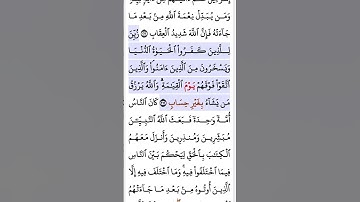 وَمَن يُبَدِّلْ نِعْمَةَ ٱللَّهِ مِنۢ بَعْدِ مَا
جَآءَتْهُ فَإِنَّ ٱللَّهَ شَدِيدُ ٱلْعِقَابِ ۝ زُيِّنَ
لِلَّذِينَ كَفَرُوا۟ ٱلْحَيَوٰةُ ٱلدُّنْيَا
وَيَسْخَرُونَ مِنَ ٱلَّذِينَ ءَامَنُوا۟ وَٱلَّذِينَ
ٱتَّقَوْا۟ فَوْقَهُمْ يَوْمَ ٱلْقِيَٰمَةِ وَٱللَّهُ يَرْزُقُ
مَن يَشَآءُ بِغَيْرِ حِسَابٍ ۝ كَانَ ٱلنَّاسُ
أُمَّةً وَٰحِدَةً فَبَعَثَ ٱللَّهُ ٱلنَّبِيِّـۧنَ
مُبَشِّرِينَ وَمُنذِرِينَ وَأَنزَلَ مَعَهُمُ
ٱلْكِتَٰبَ بِٱلْحَقِّ لِيَحْكُمَ بَيْنَ ٱلنَّاسِ
فِيمَا ٱخْتَلَفُوا۟ فِيهِ وَمَا ٱخْتَلَفَ فِيهِ إِلَّا
ٱلَّذِينَ أُوتُوهُ مِنۢ بَعْدِ مَا جَآءَتْهُمُ